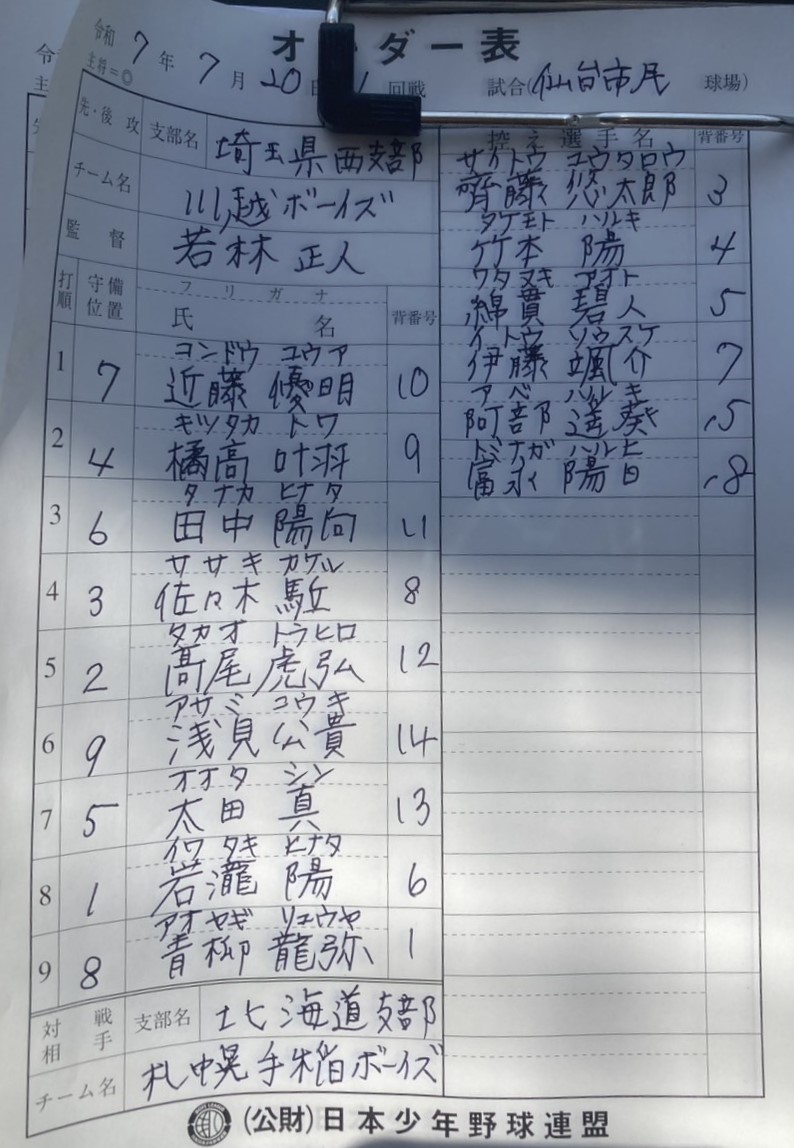 オーダー表
令和 7 年 7 月 20 日 1 回戦 試合(仙台市民 球場)
主将=◎
先・後 攻 支部名 埼玉県西支部
チーム名 川越ボーイズ
監督 若林 正人
打順 守備位置 フリガナ 氏名 背番号
コンドウ ユウア
1 7 近藤 優明 10
キツタカ トワ
2 4 橘高 叶羽 9
タナカ ヒナタ
3 6 田中 陽向 11
ササキ カケル
4 3 佐々木 駈 8
タカオ トラヒロ
5 2 髙尾 虎弘 12
アサミ コウキ
6 9 浅見 公貴 14
オオタ シン
7 5 太田 真 13
イワタキ ヒナタ
8 1 岩瀧 陽 6
アオヤギ リュウヤ
9 8 青柳 龍弥 1
対戦相手 支部名 北海道支部
チーム名 札幌手稲ボーイズ
控え選手名 背番号
サイトウ ユウタロウ
齊藤 悠太郎 3
タケモト ハルキ
竹本 陽 4
ワタヌキ アオト
綿貫 碧人 5
イトウ ソウスケ
伊藤 颯介 7
アベ ハルキ
阿部 遥葵 15
トミナガ ハルヒ
富永 陽日 18
(公財)日本少年野球連盟